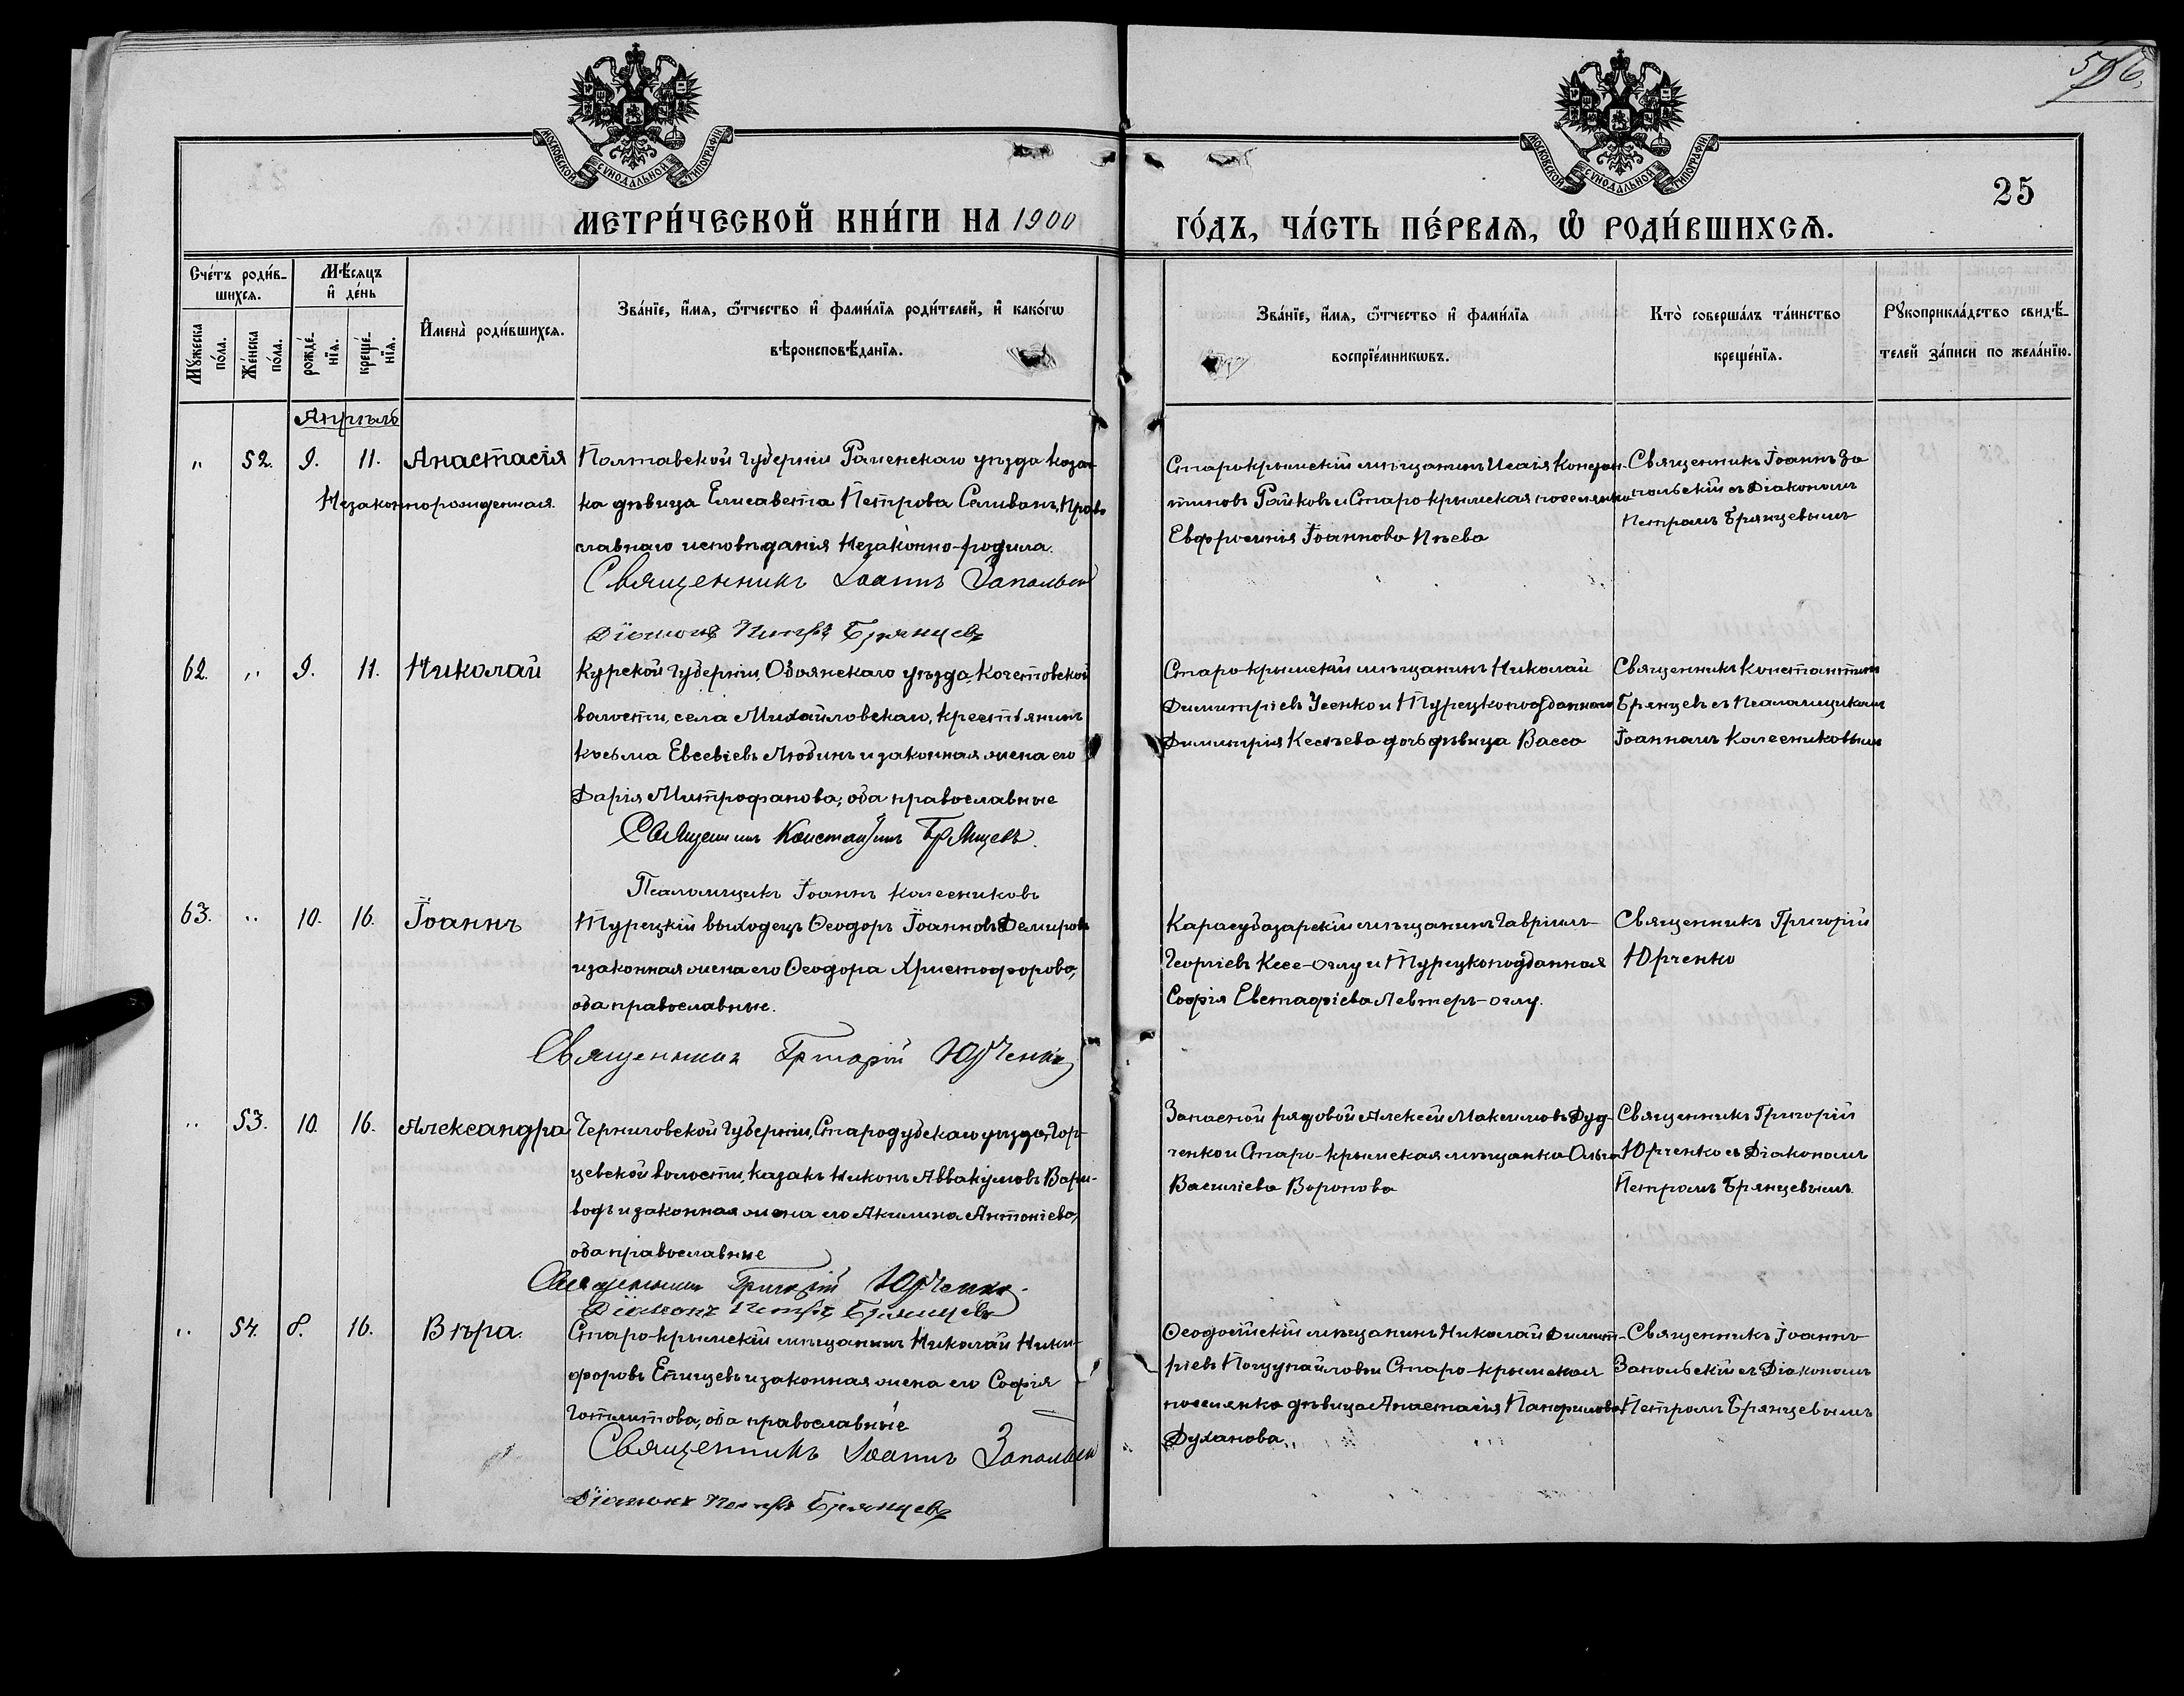 596.
МОСКОВСКОЙ СѴНОДАЛЬНОЙ ТИПОГРАФІИ
МОСКОВСКОЙ СѴНОДАЛЬНОЙ ТИПОГРАФІИ
25
МЕТРИ́ЧЕСКОЙ КНИ́ГИ НА 1900 ГО́ДЪ, ЧА́СТЬ ПЕ́РВАѦ, Ѡ҆ РОДИ́ВШИХСѦ.
Сче́тъ роди́в-
шихсѧ.
Мѣ́сяцъ
и҆ де́нь
Мꙋ́жеска по́ла.
Же́нска по́ла.
рожде́-
нїѧ.
креще́-
нїѧ.
И҆мена̀ роди́вшихсѧ.
Зва́нїе, и҆́мѧ, ѻ҆́тчество и҆ фами́лїѧ роди́телей, и҆ како́гѡ
вѣроисповѣ́данїѧ.
Зва́нїе, и҆́мѧ, ѻ҆́тчество и҆ фами́лїѧ
воспрїе́мникѡвъ.
Кто̀ соверша́лъ та́инство
креще́нїѧ.
Рꙋкоприкла́дство свидѣ́-
телей за́писи по жела́нїю.
Апрѣль
„ 52. 9. 11. Анастасія
Незаконнорожденная.
Полтавской губерніи Роменскаго уѣзда козач-
ка дѣвица Елисавета Петрова Селиванъ, Право
славнаго исповѣданія Незаконно-родила.
Священникъ Іоаннъ Запольскій
Діаконъ Петръ Брянцевъ
Старокрымскій мѣщанинъ Исаія Констан-
тиновъ Райковъ и Старо-крымская поселянка
Евфросинія Іоаннова
Священникъ Іоаннъ За
польскій съ Діакономъ
Петромъ Брянцевымъ
62. „ 9. 11. Николай
Курской губерніи, Обоянскаго уѣзда, Кочетовской
волости, села Михайловскаго, крестьянинъ
Косьма Евсевіевъ Любинъ и законная жена его
Дарія Митрофанова; оба православные
Священникъ Константинъ Брянцевъ.
Псаломщикъ Іоаннъ Колесниковъ
Старо-крымскій мѣщанинъ Николай
Димитріевъ Усенко и Турецкоподданнаго
Димитрія дочь дѣвица Васса
Священникъ Константинъ
Брянцевъ съ Псаломщикомъ
Іоанномъ Колесниковымъ
63. „ 10. 16. Іоаннъ
Турецкій выходецъ Ѳеодоръ Іоанновъ Демировъ
и законная жена его Ѳеодора Христофорова,
оба православные.
Священникъ Григорій Юрченко
Карасубазарскій мѣщанинъ Гавріилъ
Георгіевъ Кесе-оглу и Турецкоподданная
Софія Евстафіева Левтеръ-оглу.
Священникъ Григорій
Юрченко
„ 53. 10. 16. Александра
Черниговской губерніи, Стародубскаго уѣзда,
волости, казакъ Никонъ Аввакумовъ Вари-
водъ и законная жена его Акилина Антоніева,
оба православные
Священникъ Григорій Юрченко.
Діаконъ Петръ Брянцевъ
Запасной рядовой Алексѣй Максимовъ Дуд-
ченко и Старо-крымская мѣщанка Ольга
Василіева Воронова
Священникъ Григорій
Юрченко съ Діакономъ
Петромъ Брянцевымъ
„ 54. 8. 16. Вѣра.
Старо-крымскій мѣщанинъ Николай Ники-
форовъ Епищевъ и законная жена его Софія
оба православные
Священникъ Іоаннъ Запольскій
Діаконъ Петръ Брянцевъ
Ѳеодосійскій мѣщанинъ Николай Димит-
ріевъ и Старо-крымская
поселянка дѣвица Анастасія Панфилова
Духанова.
Священникъ Іоаннъ
Запольскій съ Діакономъ
Петромъ Брянцевымъ